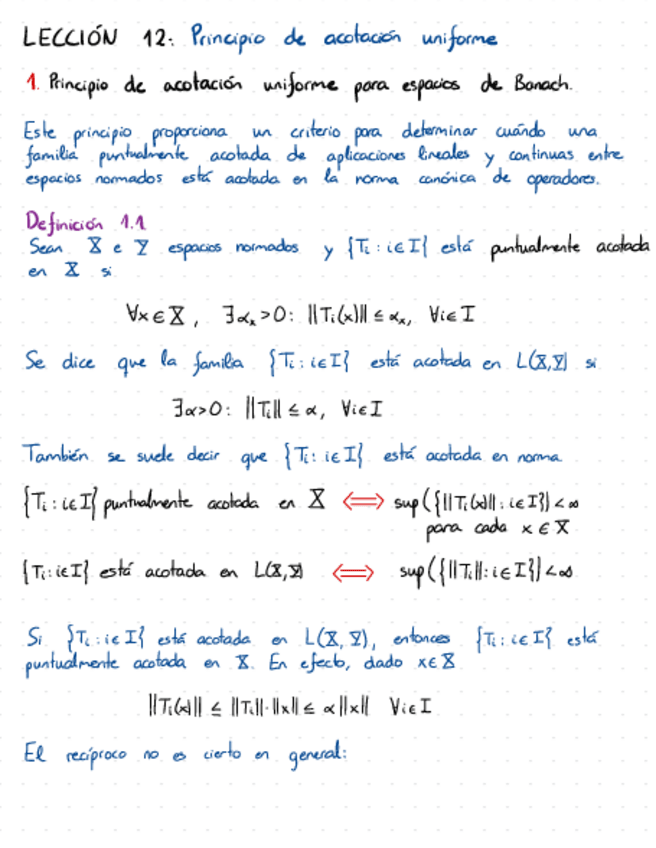 LECCIÓN 12: Principio de acotación uniforme
1. Principio de acotación uniforme para espacios de Banach.
Este principio proporciona un criterio para determinar cuándo una
familia puntualmente acotada de aplicaciones lineales y continuas entre
espacios normados está acotada en la norma canónica de operadores.
Definición 1.1
Sean X e Y espacios normados y {Tᵢ : i∈I} está puntualmente acotada
en X si
∀x∈X, ∃αₓ>0: ||Tᵢ(x)|| ≤ αₓ, ∀i∈I
Se dice que la familia {Tᵢ : i∈I} está acotada en L(X,Y) si
∃α>0: ||Tᵢ|| ≤ α, ∀i∈I
También se suele decir que {Tᵢ : i∈I} está acotada en norma
{Tᵢ : i∈I} puntualmente acotada en X ⟺ sup({||Tᵢ(x)|| : i∈I}) < ∞
para cada x∈X
{Tᵢ : i∈I} está acotada en L(X,Y) ⟺ sup({||Tᵢ|| : i∈I}) < ∞
Si {Tᵢ : i∈I} está acotada en L(X,Y), entonces {Tᵢ : i∈I} está
puntualmente acotada en X. En efecto, dado x∈X
||Tᵢ(x)|| ≤ ||Tᵢ||·||x|| ≤ α||x|| ∀i∈I
El recíproco no es cierto en general: